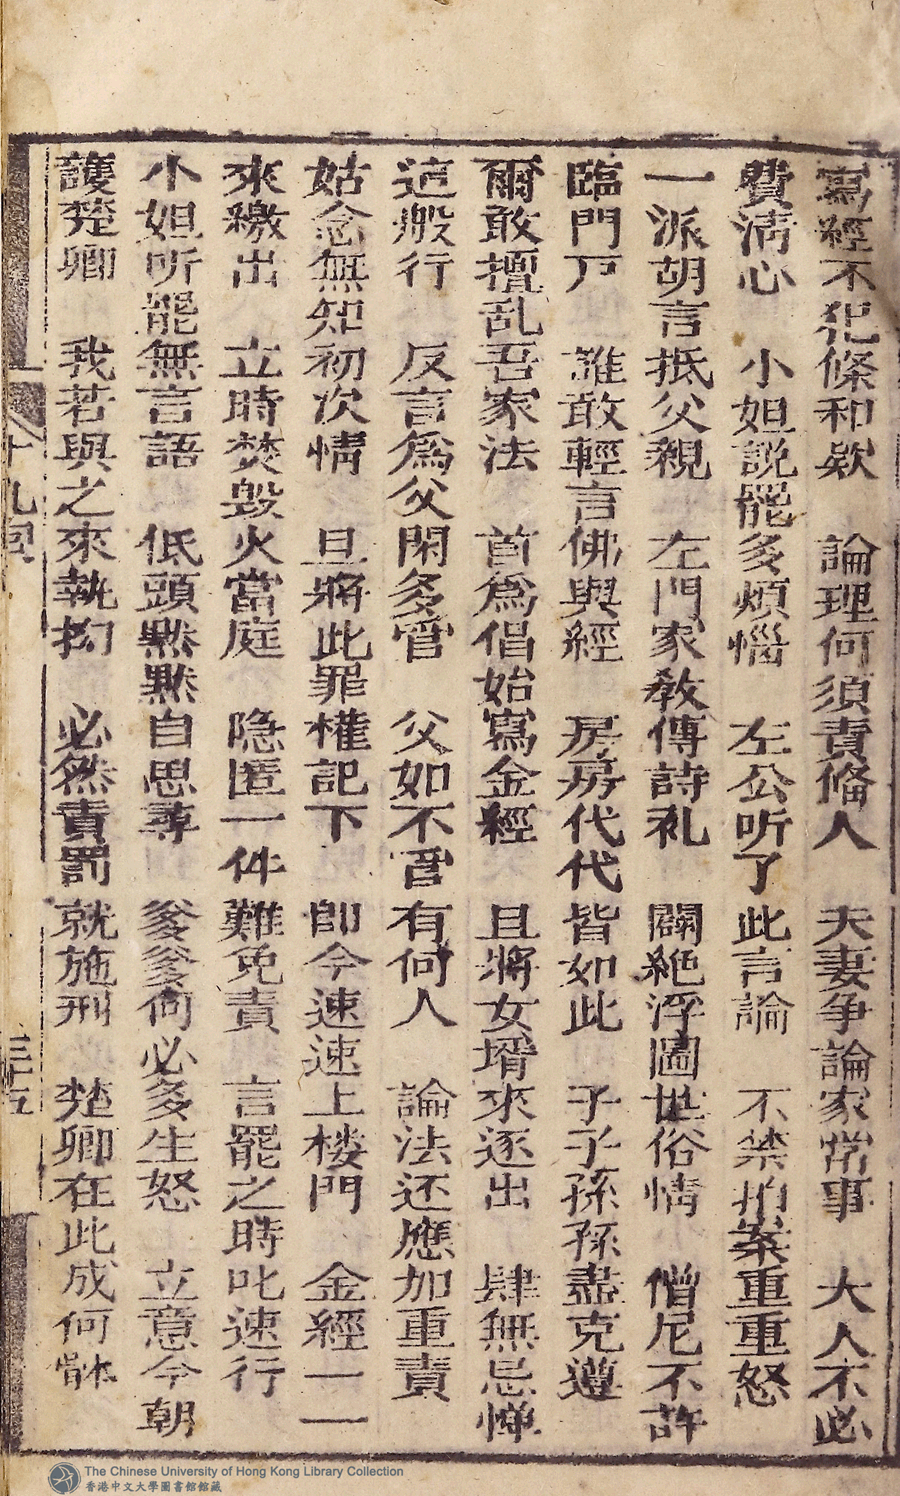 寫經不犯條和欵　論理何須責俻人　夫妻争論家常事　大人不必
費清心　小姐説罷多煩惱　左公听了此言論　不禁拍案重重怒
一派胡言抵父親　左門家教傳詩礼　闢絶浮圖世俗情　僧尼不許
臨門戸　誰敢輕言佛與經　房房代代皆如此　子子孫孫盡克遵
爾敢擅乱吾家法　首爲倡始寫金經　且將女壻來逐出　肆無忌憚
這般行　反言爲父閑多管　父如不管有何人　論法还應加重責
姑念無知初次情　旦將此罪權記下　卽今速速上楼門　金經一一
來繳出　立時焚毁火當庭　隐匿一件難免責　言罷之時叱速行
小姐听罷無言語　低頭黙黙自思尋　爹爹何必多生怒　立意今朝
護楚卿　我若與之來執拘　必然責罰就施刑　楚卿在此成何體
十九囘
三十五
The Chinese University of Hong Kong Library Collection
香港中文大學圖書館館藏